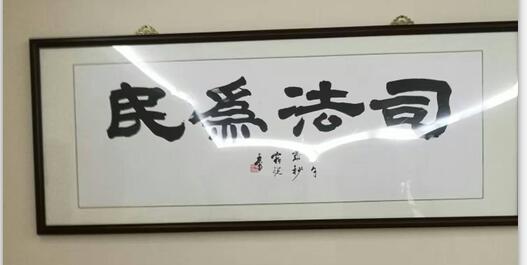 司法為民